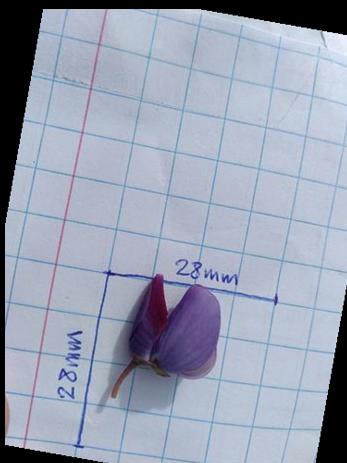 28mm
28mm